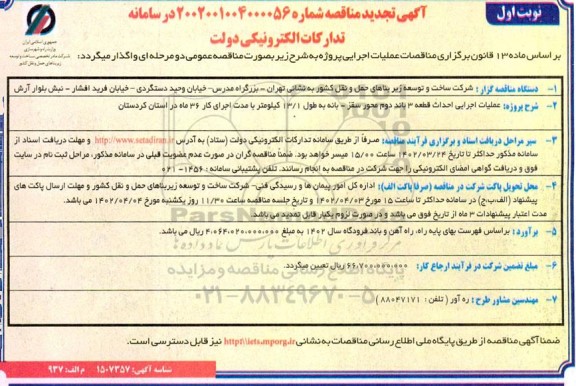 نوبت اول
آگهی تجدید مناقصه شماره ۲۰۰۲۰۰۱۰۰۴۰۰۰۰۵۶ در سامانه
تدارکات الکترونیکی دولت
جمهوری اسلامی ایران
وزارت راه و شهرسازی
شرکت ساخت و توسعه
زیربناهای حمل و نقل کشور
بر اساس ماده ۱۳ قانون برگزاری مناقصات عملیات اجرایی پروژه به شرح زیر بصورت مناقصه عمومی دو مرحله ای واگذار میگردد:
۱- دستگاه مناقصه گزار: شرکت ساخت و توسعه زیربناهای حمل و نقل کشور به نشانی تهران - بزرگراه مدرس- خیابان وحید دستگردی - خیابان فرید افشار - نبش بلوار آرش
۲- شرح پروژه: عملیات اجرایی احداث قطعه ۳ باند دوم محور سقز - بانه به طول ۱۳/۱ کیلومتر با مدت اجرای کار ۳۶ ماه در استان کردستان
۳- سیر مراحل دریافت اسناد و برگزاری فرآیند مناقصه: صرفاً از طریق سامانه تدارکات الکترونیکی دولت (ستاد) به آدرس http://www.setadiran.ir و مهلت دریافت اسناد از
سامانه مذکور حداکثر تا تاریخ ۱۴۰۲/۰۳/۲۴ ساعت ۱۵/۰۰ میسر خواهد بود. ضمناً مناقصه گران در صورت عدم عضویت قبلی در سامانه مذکور، مراحل ثبت نام در سایت
فوق و دریافت گواهی امضای الکترونیکی را جهت شرکت در مناقصه به انجام رسانند. تلفن پشتیبانی سامانه: ۱۴۵۶-۰۲۱
۴- محل تحویل پاکت شرکت در مناقصه (صرفا پاکت الف): اداره کل امور پیمان ها و رسیدگی فنی- شرکت ساخت و توسعه زیربناهای حمل و نقل کشور و مهلت ارسال پاکت های
پیشنهاد (الف،ب،ج) در سامانه حداکثر تا ساعت ۱۵ مورخ ۱۴۰۲/۰۴/۰۳ و تاریخ جلسه مناقصه ساعت ۱۱/۳۰ روز یکشنبه مورخ ۱۴۰۲/۰۴/۰۴ می باشد.
مدت اعتبار پیشنهادات ۳ ماه از تاریخ فوق می باشد و در صورت لزوم یکبار قابل تمدید می باشد.
۵- برآورد: براساس فهرست بهای پایه راه، راه آهن و باند فرودگاه سال ۱۴۰۲ به مبلغ ۴.۰۶۴.۰۲۰.۰۰۰.۰۰۰ ریال می باشد.
۶- مبلغ تضمین شرکت در فرآیند ارجاع کار: ۶۶.۷۰۰.۰۰۰.۰۰۰ ریال تعیین میگردد.
۷- مهندسین مشاور طرح: ره آور (تلفن: ۸۸۰۴۷۱۷۱)
پایگاه اطلاع رسانی مناقصه و مزایده
۰۲۱-۸۸۳۴۹۶۷۰-۵
ضمناً آگهی مناقصه از طریق پایگاه ملی اطلاع رسانی مناقصات به نشانی http\\iets.mporg.ir نیز قابل دسترسی است.
شناسه آگهی: ۱۵۰۷۳۵۷ م الف: ۹۳۷